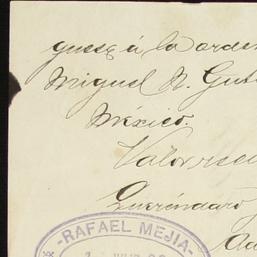 guese á la orden
Miguel N. Gut
México.
Valor reci
Queréndaro
-RAFAEL MEJIA-